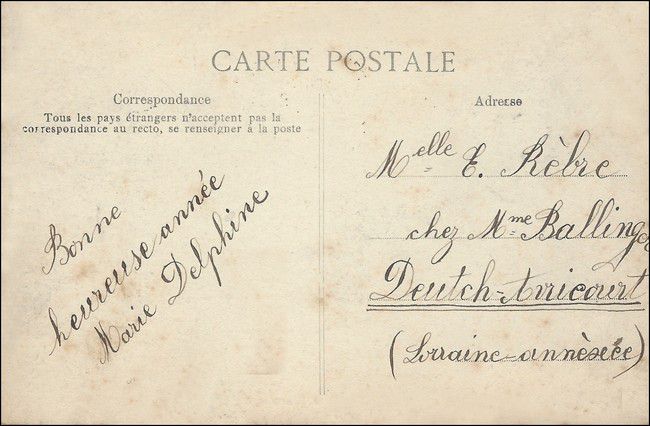 CARTE POSTALE
Correspondance
Tous les pays étrangers n'acceptent pas la
correspondance au recto, se renseigner à la poste
Bonne
heureuse année
Marie Delphine
Adresse
Melle E. Rèbre
chez Mme Ballinger
Deutch-Avricourt
(Lorraine-annèxèe)